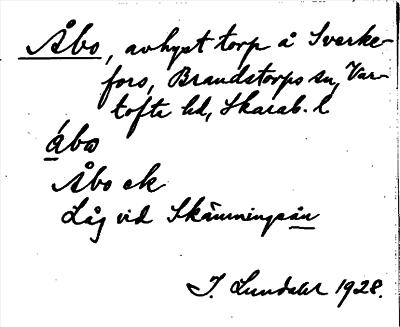 Åbo, avhyst torp å Sverke-
fors, Brandstorps sn, Var-
tofta hd, Skarab. l
åbo
Åbo ek
Låg vid Skämningsån
I. Lundahl 1928.